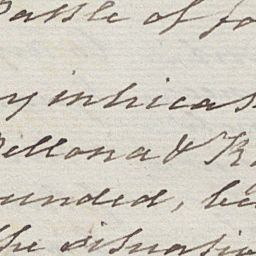 Battle of
intricas
Bellona & K
unded, be
the situatio